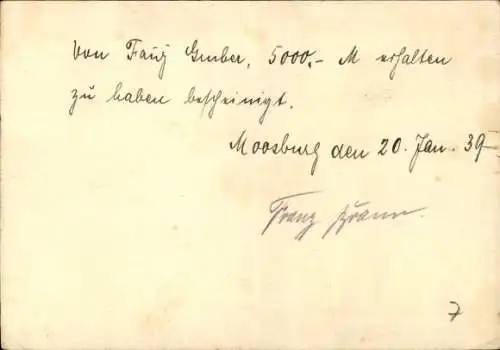 Von Franz Gruber, 5000,- M erhalten
zu haben bescheinigt.
Moosburg den 20. Jan. 39
Franz
7